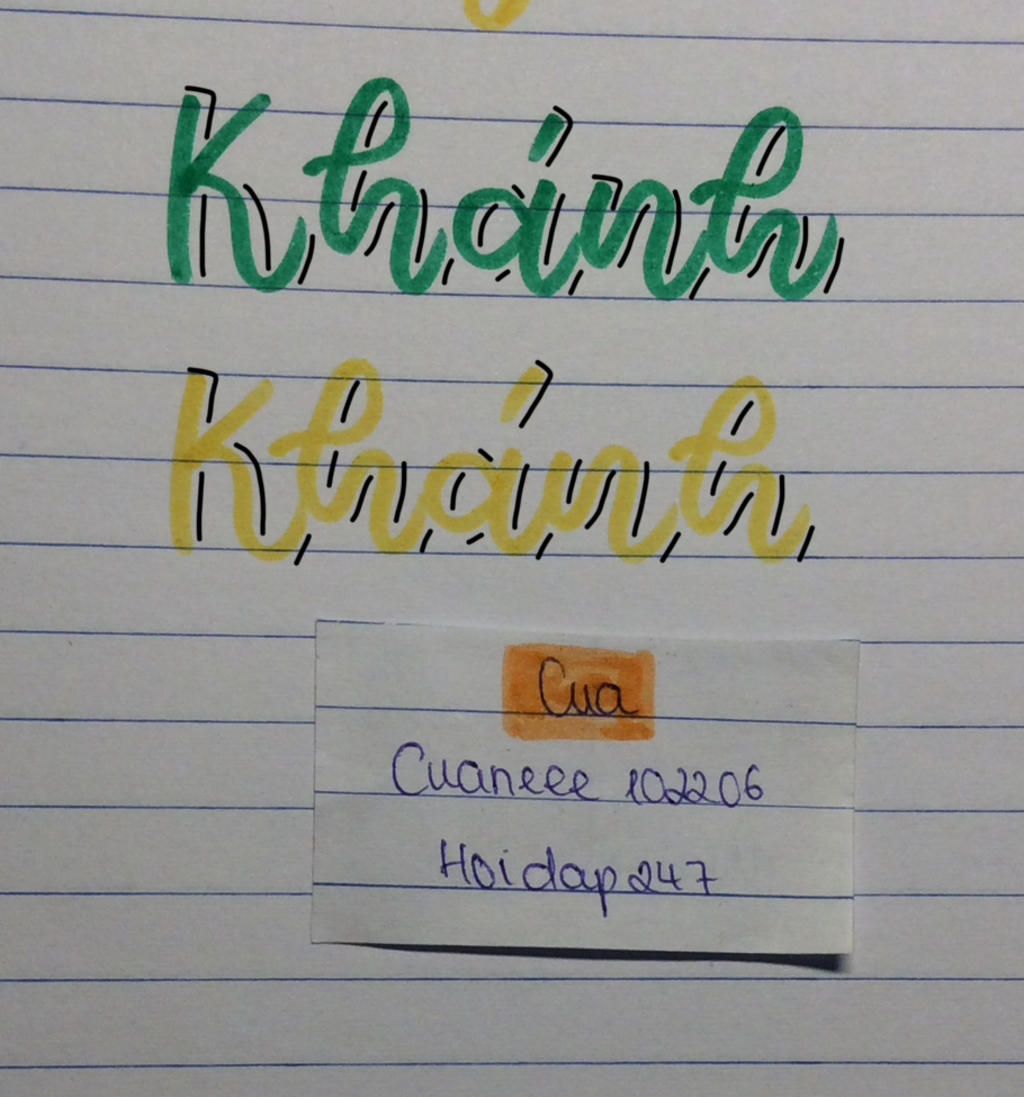 Khánh
Khánh
Cua
Cuaneee 102206
Hoidap247